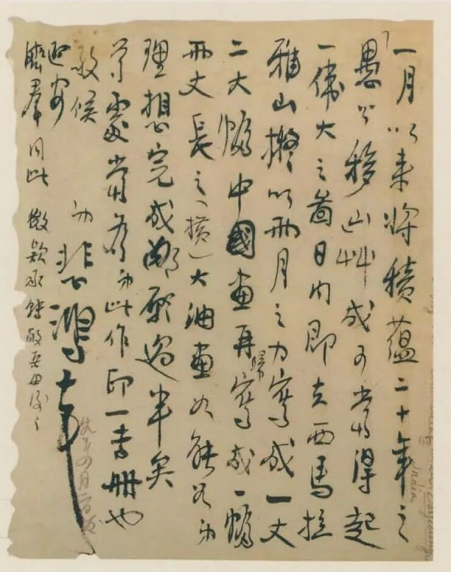 一月以来將積蘊二十年之
愚公移山艸成可當得起
一偉大之啚日内即去西馬拉
雅山擬以兩月之力寫成一丈
二大幅中國畫再歸寫成一幅
兩丈長之（横）大油畫如能如弟
理想完成鄙願過半矣
尊處當為弟此作印一專册也
敬候
弟悲鴻
濟羣同此
India